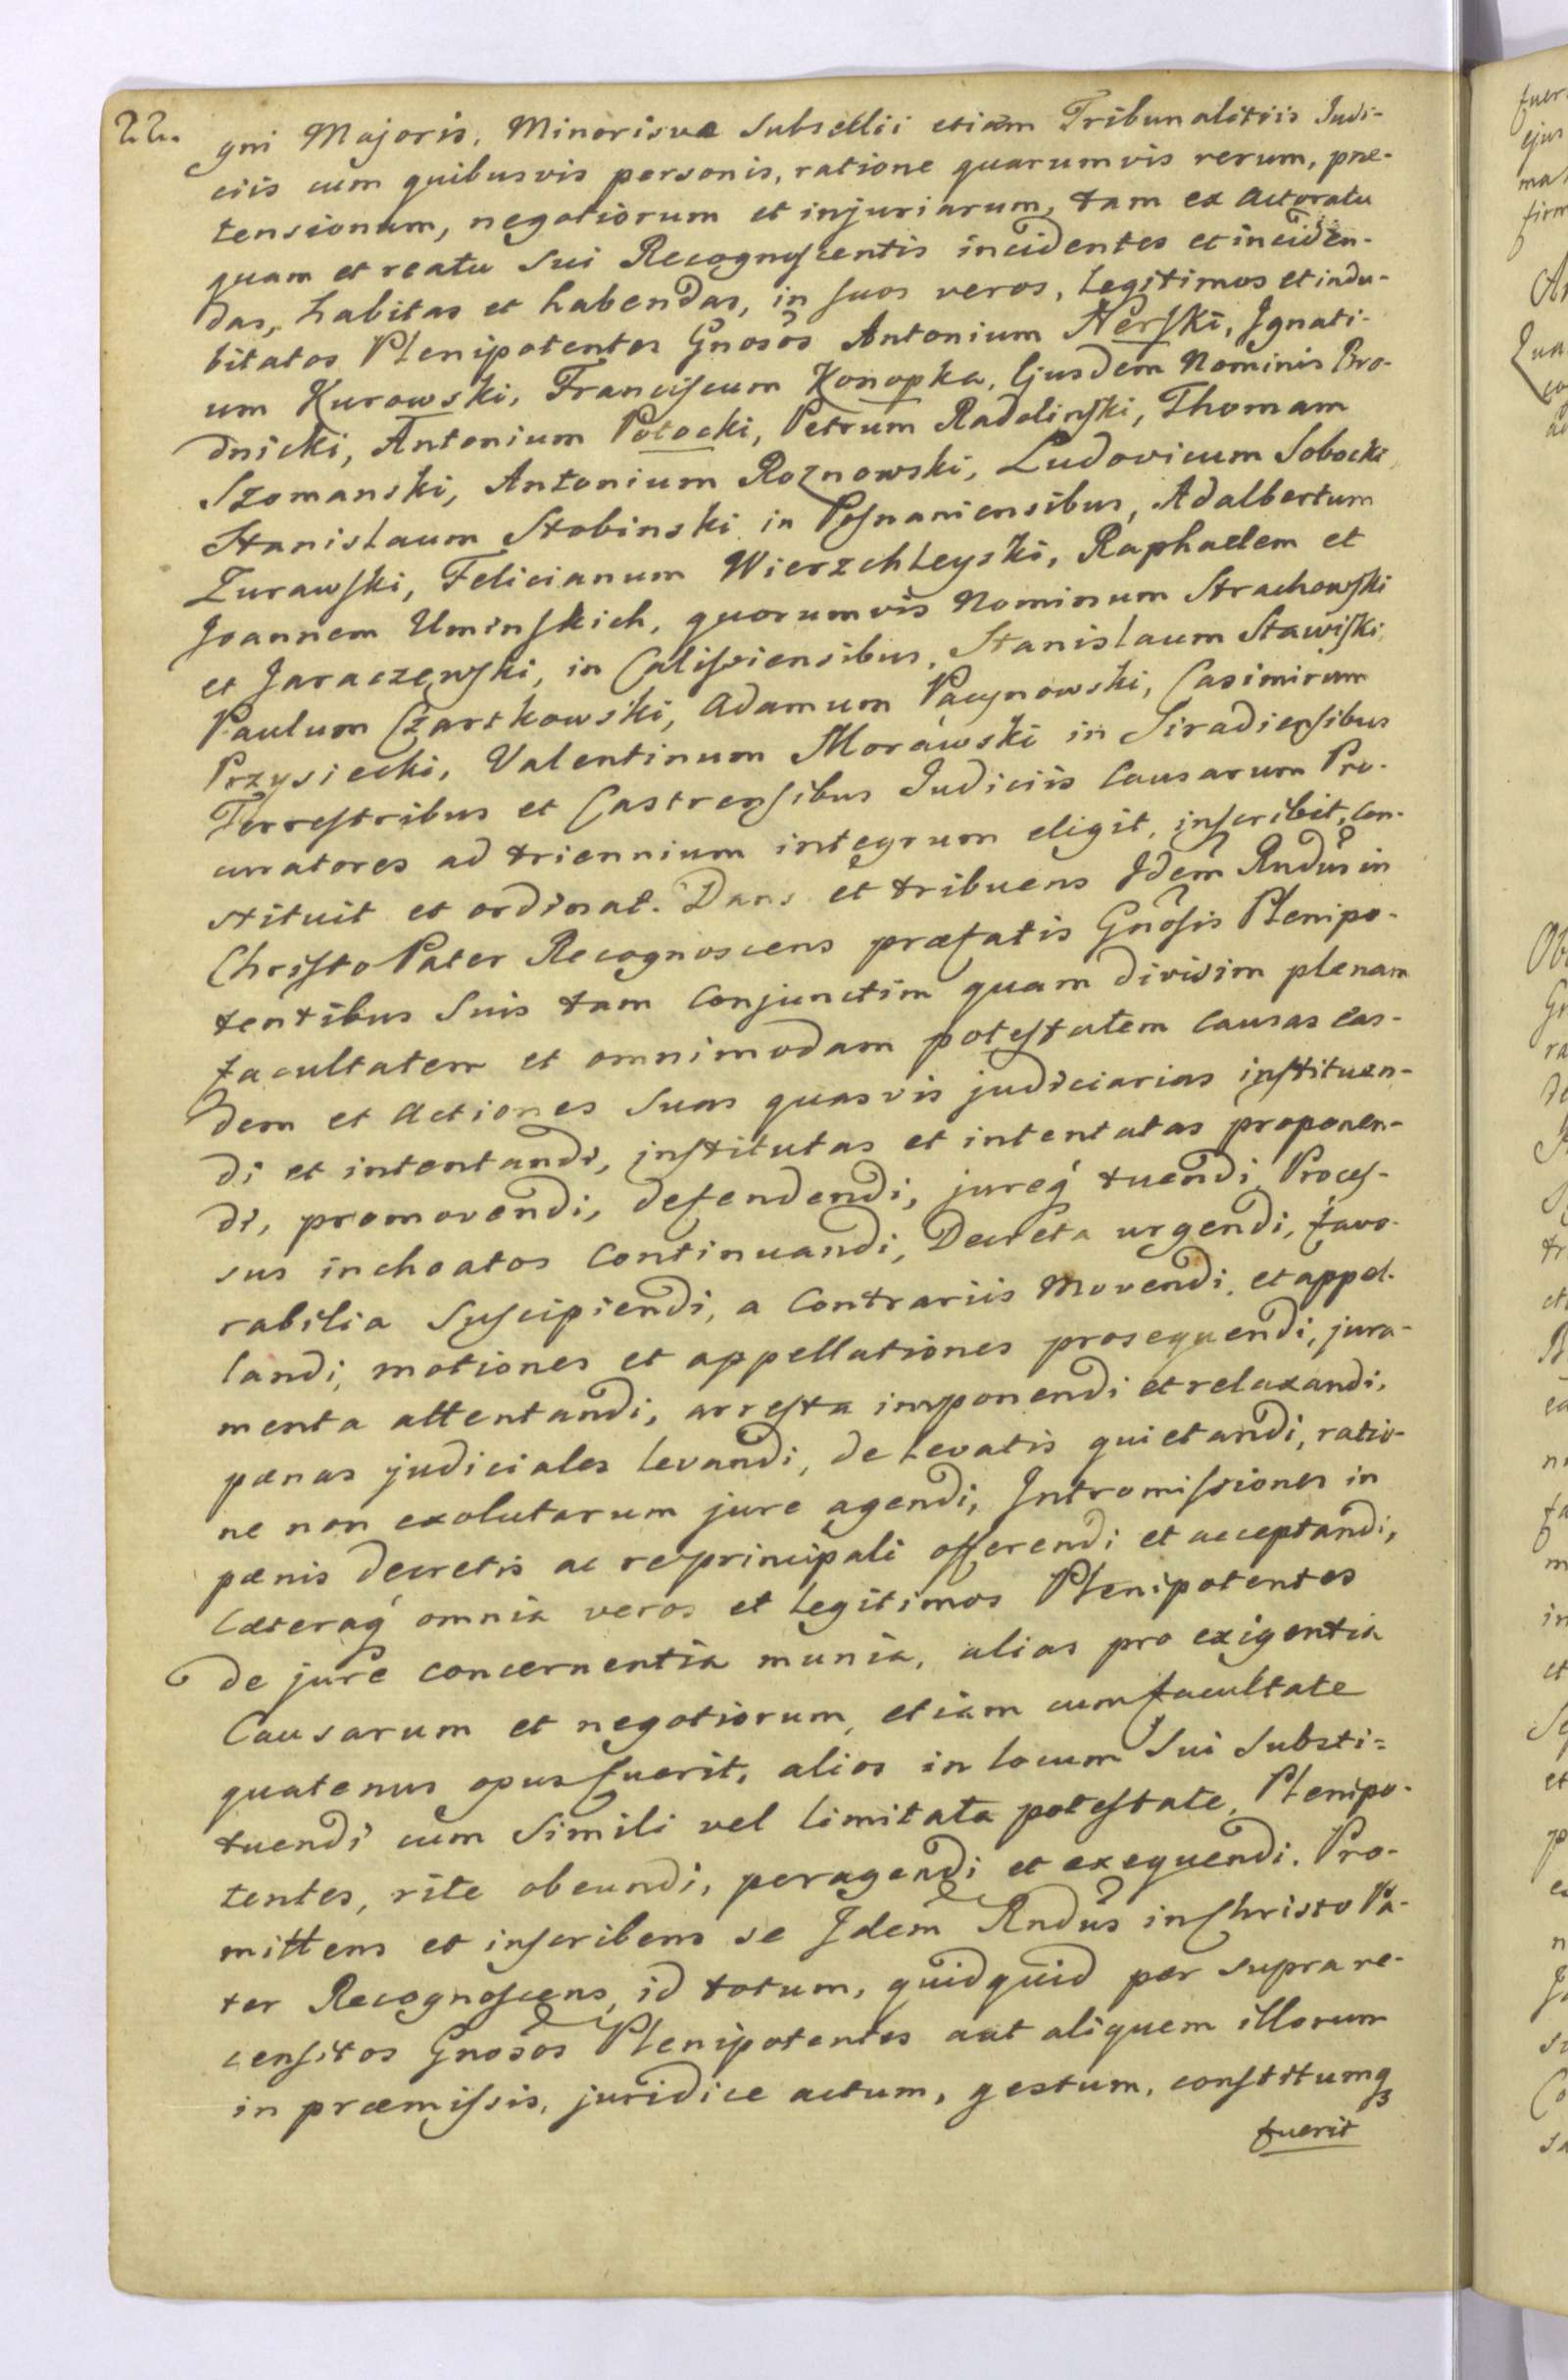 22.
gni Majoris, Minorisve Subsellii etiam Tribunalitiis Judi-
ciis cum quibusvis personis, ratione quarumvis rerum, præ-
tensionum, negotiorum et injuriarum, tam ex Actoratu
quam et reatu Sui Recognoscentis incidentes et inciden-
das, habitas et habendas, in suos veros, Legitimos et indu-
bitatos Plenipotentes Gnosos Antonium Nerski, Ignati-
um Kurowski, Franciscum Konopka, Ejusdem Nominis Bro-
dnicki, Antonium Potocki, Petrum Radolinski, Thomam
Szomanski, Antonium Roznowski, Ludovicum Sobocki,
Stanislaum Stobinski in Posnaniensibus, Adalbertum
Zurawski, Felicianum Wierzchleyski, Raphaelem et
Joannem Uminskich, quorumvis Nominum Strachowski
et Jaraczewski, in Calissiensibus, Stanislaum Stawiski,
Paulum Czartkowski, Adamum Pacynowski, Casimirum
Przysiecki, Valentinum Morawski in Siradiensibus
Terrestribus et Castrensibus Judiciis Causarum Pro-
curatores ad triennium integrum eligit, inscribit, con-
stituit et ordinat. Dans et tribuens Idem Rndus in
Christo Pater Recognoscens præfatis Gnosis Plenipo-
tentibus Suis tam Conjunctim quam divisim plenam
facultatem et omnimodam potestatem Causas eas-
dem et Actiones Suas quasvis judiciarias instituen-
di et intentandi, institutas et intentatas proponen-
di, promovendi, defendendi, jureq' tuendi, Proces-
sus inchoatos Continuandi, Decreta urgendi, favo-
rabilia Suscipiendi, a Contrariis Movendi, et appel-
landi, motiones et appellationes prosequendi, jura-
menta attentandi, arresta imponendi et relaxandi,
pænas judiciales levandi, de levatis quietandi, ratio-
ne non exolutarum jure agendi, Intromissiones in
pænis decretis ac re principali offerendi et acceptandi,
Cæteraq' omnia veros et Legitimos Plenipotentes
de jure concernentia munia, alias pro exigentia
Causarum et negotiorum, etiam cum facultate
quatenus opus fuerit, alios in locum Sui Substi-
tuendi cum Simili vel limitata potestate, Plenipo-
tentes, rite obeundi, peragendi et exequendi. Pro-
mittens et inscribens se Idem Rndus in Christo Pa-
ter Recognoscens, id totum, quidquid per supra re-
censitos Gnosos Plenipotentes aut aliquem illorum
in præmissis, juridice actum, gestum, constitumq3
fuerit